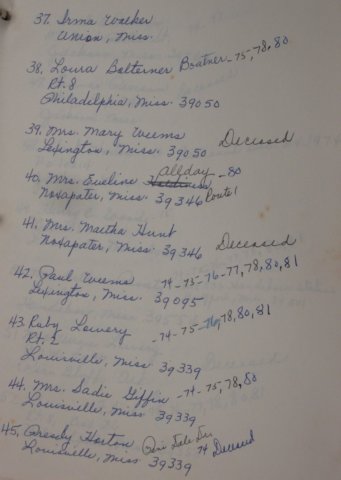 37. Irma Walker
Union, Miss.
38. Loura Bolterner Boatner - 75, 78, 80
Rt. 8
Philadelphia, Miss. 39050
39. Mrs. Mary Weems Deceased
Lexington, Miss. 39050
40. Mrs. Eveline Allday - 80
Noxapater, Miss. 39346 Route 1
41. Mrs. Martha Hunt
Noxapater, Miss. 39346 Deceased
42. Paul Weems 74 - 75 - 76 - 77, 78, 80, 81
Lexington, Miss. 39095
43. Ruby Lowery - 74 - 75 - 76, 78, 80, 81
Rt. 2
Louisville, Miss 39339
44. Mrs. Sadie Giffin - 74 - 75, 78, 80
Louisville, Miss 39339
45. Horton 74 Deceased
Louisville, Miss 39339